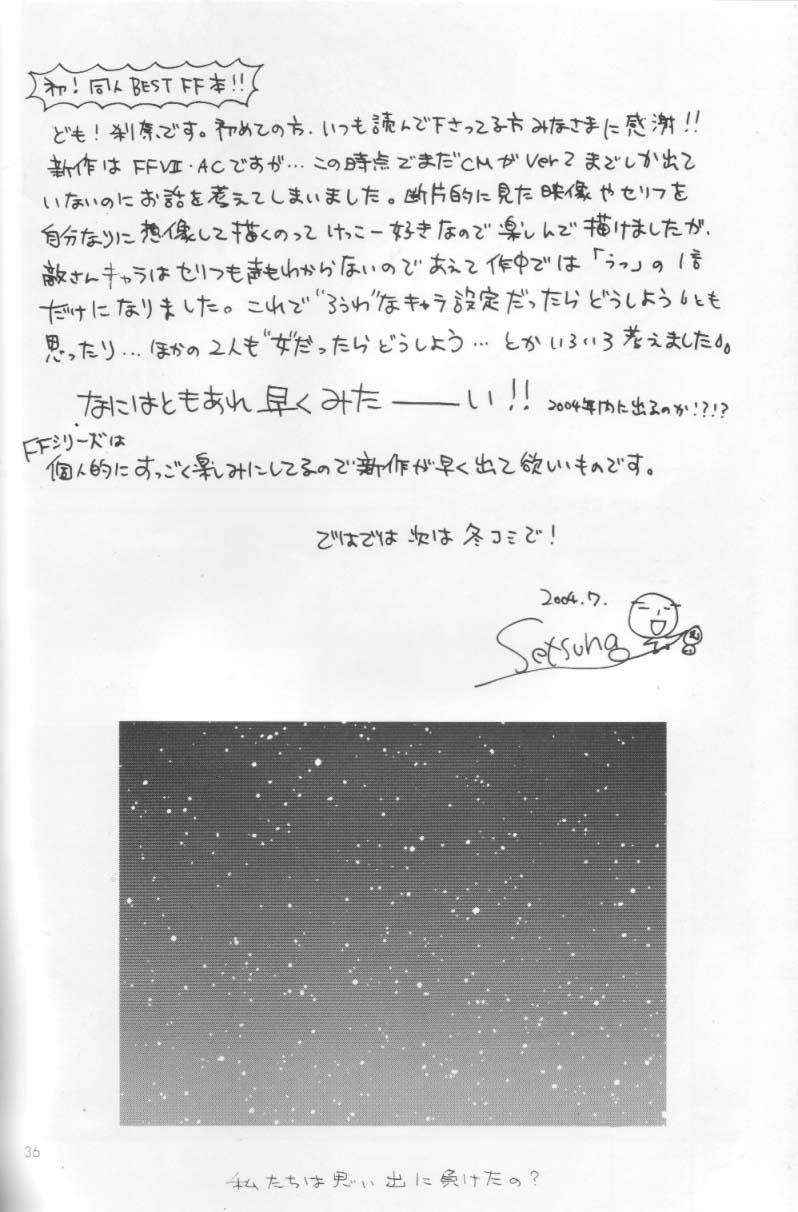 初!同人BEST FF本!!
ども!刹那です。初めての方、いつも読んで下さってる方みなさまに感謝!!
新作はFFVII・ACですが…この時点でまだCMがVer2までしか出て
いないのにお話を考えてしまいました。断片的に見た映像やセリフを
自分なりに想像して描くのってけっこー好きなので楽しんで描けましたが、
敵さんキャラはセリフも声もわからないのであえて作中では「うっ」の1語
だけになりました。これで"ろうわ"なキャラ設定だったらどうしようとも
思ったり…ほかの2人も"女"だったらどうしよう…とかいろいろ考えました。
なにはともあれ早くみた――い!! 2004年内に出るのか!?!?
FFシリーズは
個人的にすっごく楽しみにしてるので新作が早く出て欲しいものです。
ではでは次は冬コミで!
2004.7.
Setsuna
36
私たちは思い出に負けたの?